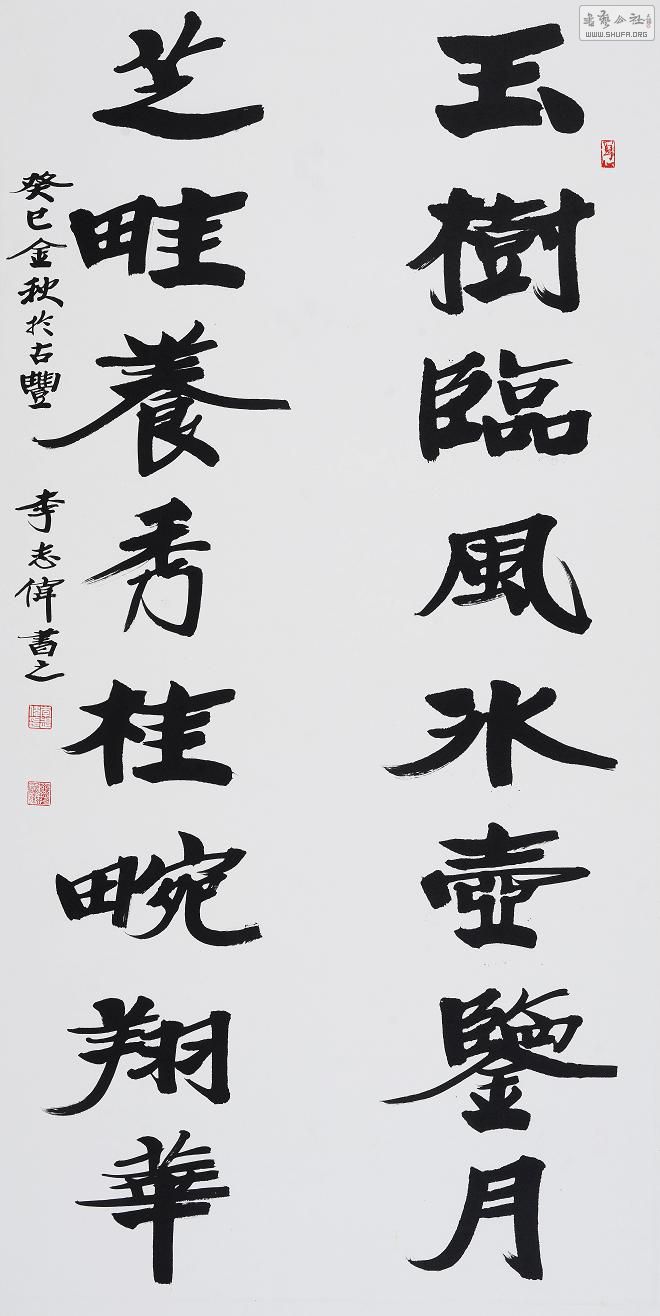 玉樹臨風冰壺鑒月
芝畦養秀桂畹翔華
癸巳金秋於古豐
李志偉書之
WWW.SHUFA.ORG